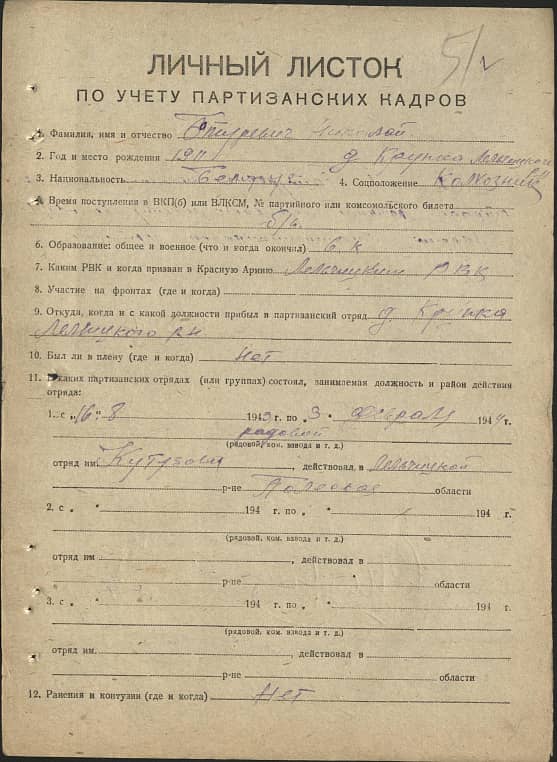 5/
ЛИЧНЫЙ ЛИСТОК
ПО УЧЕТУ ПАРТИЗАНСКИХ КАДРОВ
1. Фамилия, имя и отчество Николай
2. Год и место рождения 1911 д.
3. Национальность Белорус 4. Соцположение Колхозник
5. Время поступления в ВКП(б) или ВЛКСМ, № партийного или комсомольского билета
б/п.
6. Образование: общее и военное (что и когда окончил) 6 к
7. Каким РВК и когда призван в Красную Армию Лельчицким РВК
8. Участие на фронтах (где и когда)
9. Откуда, когда и с какой должности прибыл в партизанский отряд д.
р-н
10. Был ли в плену (где и когда) Нет
11. В каких партизанских отрядах (или группах) состоял, занимаемая должность и район действия
отряда:
1. с „16“ 8 1943 г. по „3“ февраля 1944 г.
рядовой
(рядовой, ком. взвода и т. д.)
отряд им. Кутузова, действовал в Лельчицкой
р-не Полесской области
2. с „ “ 194 г. по „ “ 194 г.
(рядовой, ком. взвода и т. д.)
отряд им , действовал в
р-не области
3. с „ “ 194 г. по „ “ 194 г.
(рядовой, ком. взвода и т. д.)
отряд им. , действовал в
р-не области
12. Ранения и контузии (где и когда) Нет